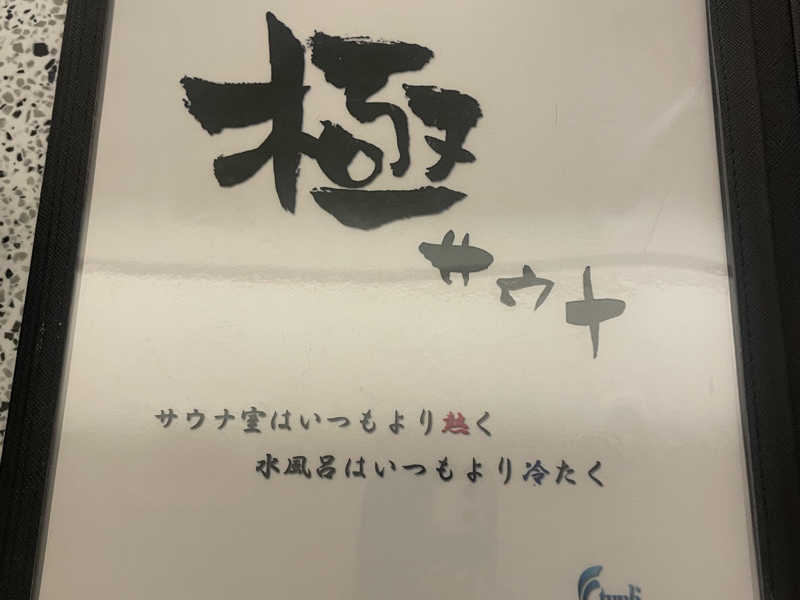 極
サウナ
サウナ室はいつもより熱く
水風呂はいつもより冷たく